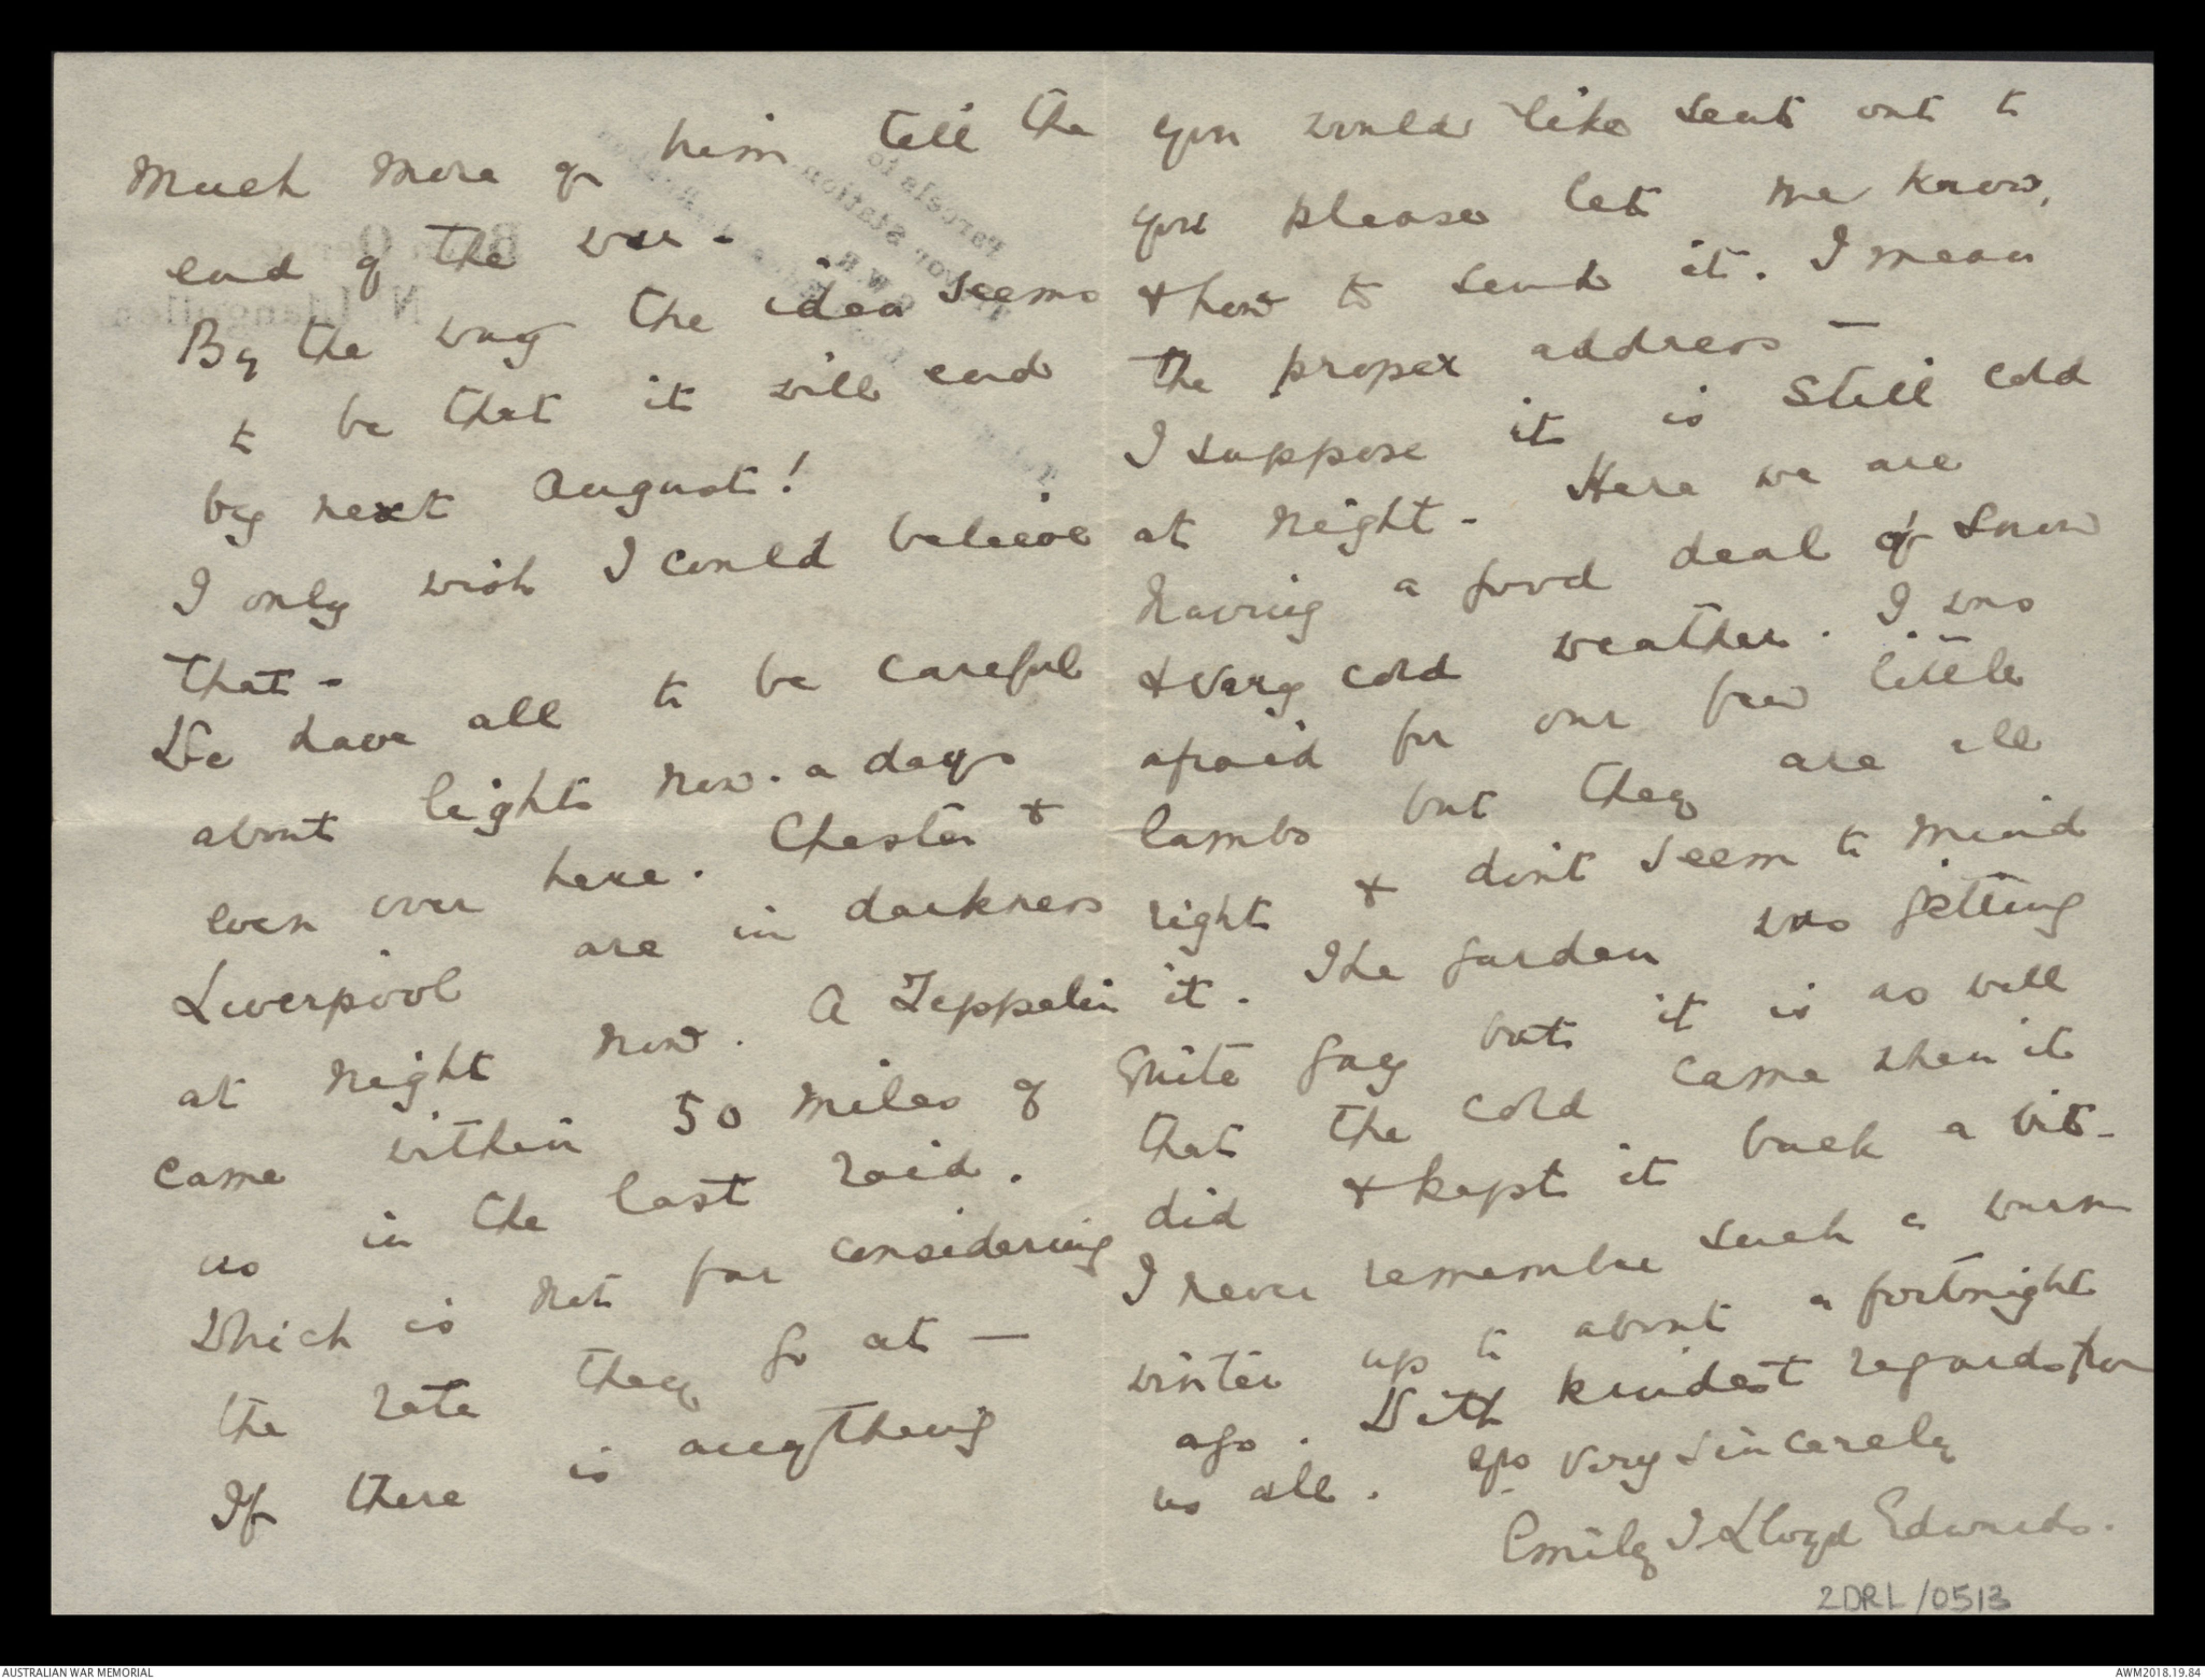 much more of him till the
end of the war -
By the way the idea seems
to be that it will end
by next August!
I only wish I could believe
that -
We have all to be careful
about lights now. a days
even over here. Chester &
Liverpool are in darkness
at night now. A Zeppelin
came within 50 miles of
us in the last raid.
Which is not far considering
the rate they go at —
If there is anything
you would like sent out to
you please let me know,
& how to send it. I mean
the proper address —
I suppose it is still cold
at night - Here we are
having a good deal of snow
& very cold weather. I was
afraid for our few little
lambs but they are all
right & don't seem to mind
it. The garden was getting
quite gay but it is as well
that the cold came when it
did & kept it back a bit -
I never remember such a warm
winter up to about a fortnight
ago. With kindest regards from
us all. Yrs very sincerely
Emily I. Lloyd Edwards.
2DRL/0513
Parcels to
Station
G.W.R.
N Llangollen
AUSTRALIAN WAR MEMORIAL
AWM2018.19.84